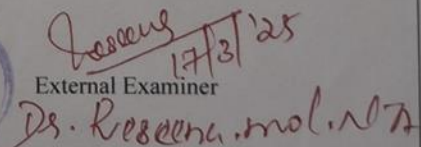 17/3/'25
External Examiner
Dr. Reseena.mol.N.A